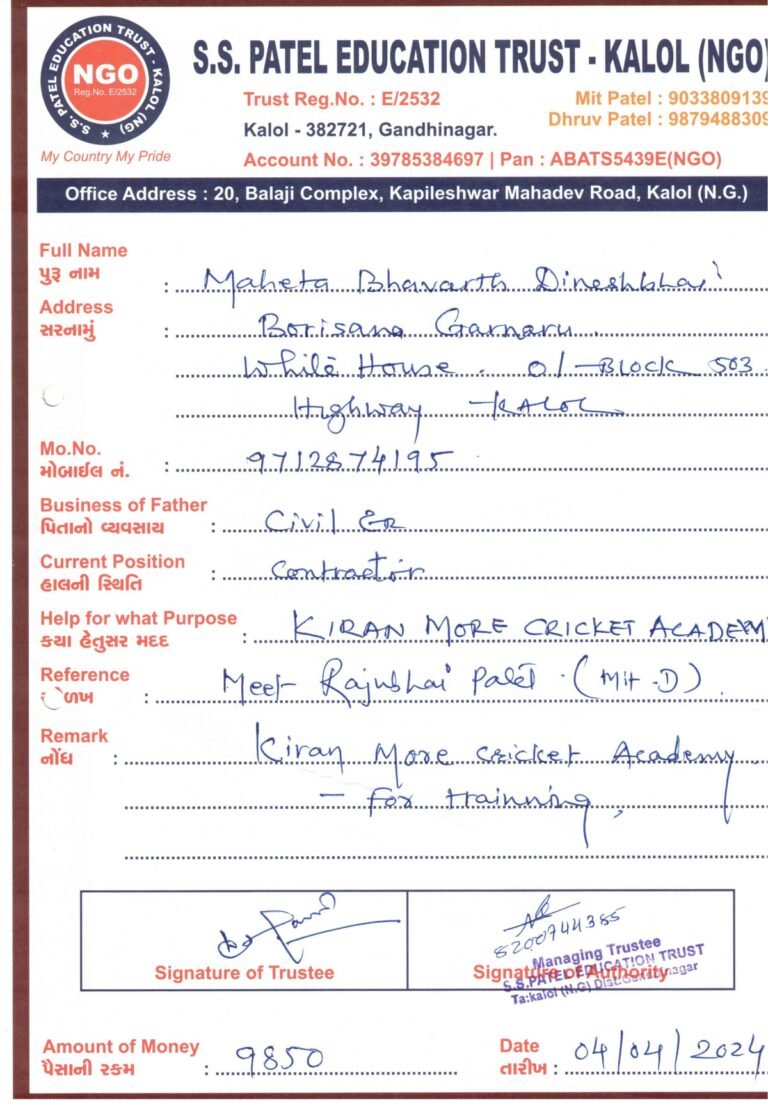 S.S. PATEL EDUCATION TRUST - KALOL (NG)
NGO
Reg.No. E/2532
My Country My Pride
S.S. PATEL EDUCATION TRUST - KALOL (NGO)
Trust Reg.No. : E/2532
Mit Patel : 9033809139
Kalol - 382721, Gandhinagar.
Dhruv Patel : 9879488309
Account No. : 39785384697 | Pan : ABATS5439E(NGO)
Office Address : 20, Balaji Complex, Kapileshwar Mahadev Road, Kalol (N.G.)
Full Name
પુરૂ નામ : Maheta Bhavarth Dineshbhai
Address
સરનામું : Borisana Garnaru.
White House. 01-BLOCK 503
Highway - KALOL
Mo.No.
મોબાઈલ નં. : 9712874195
Business of Father
પિતાનો વ્યવસાય : Civil ER
Current Position
હાલની સ્થિતિ : Contractor
Help for what Purpose
કયા હેતુસર મદદ : KIRAN MORE CRICKET ACADEM
Reference
ળખ : Meet Rajubhai Patel. (Mit-D)
Remark
નોંધ : Kiran More Cricket Academy.
- For trainning,
8200744385
Managing Trustee
S.S.PATEL EDUCATION TRUST
Ta:kalol (N.G) Dist:Gandhinagar
Signature of Trustee
Signature of Authority
Amount of Money
પૈસાની રકમ : 9850
Date
તારીખ : 04/04/2024